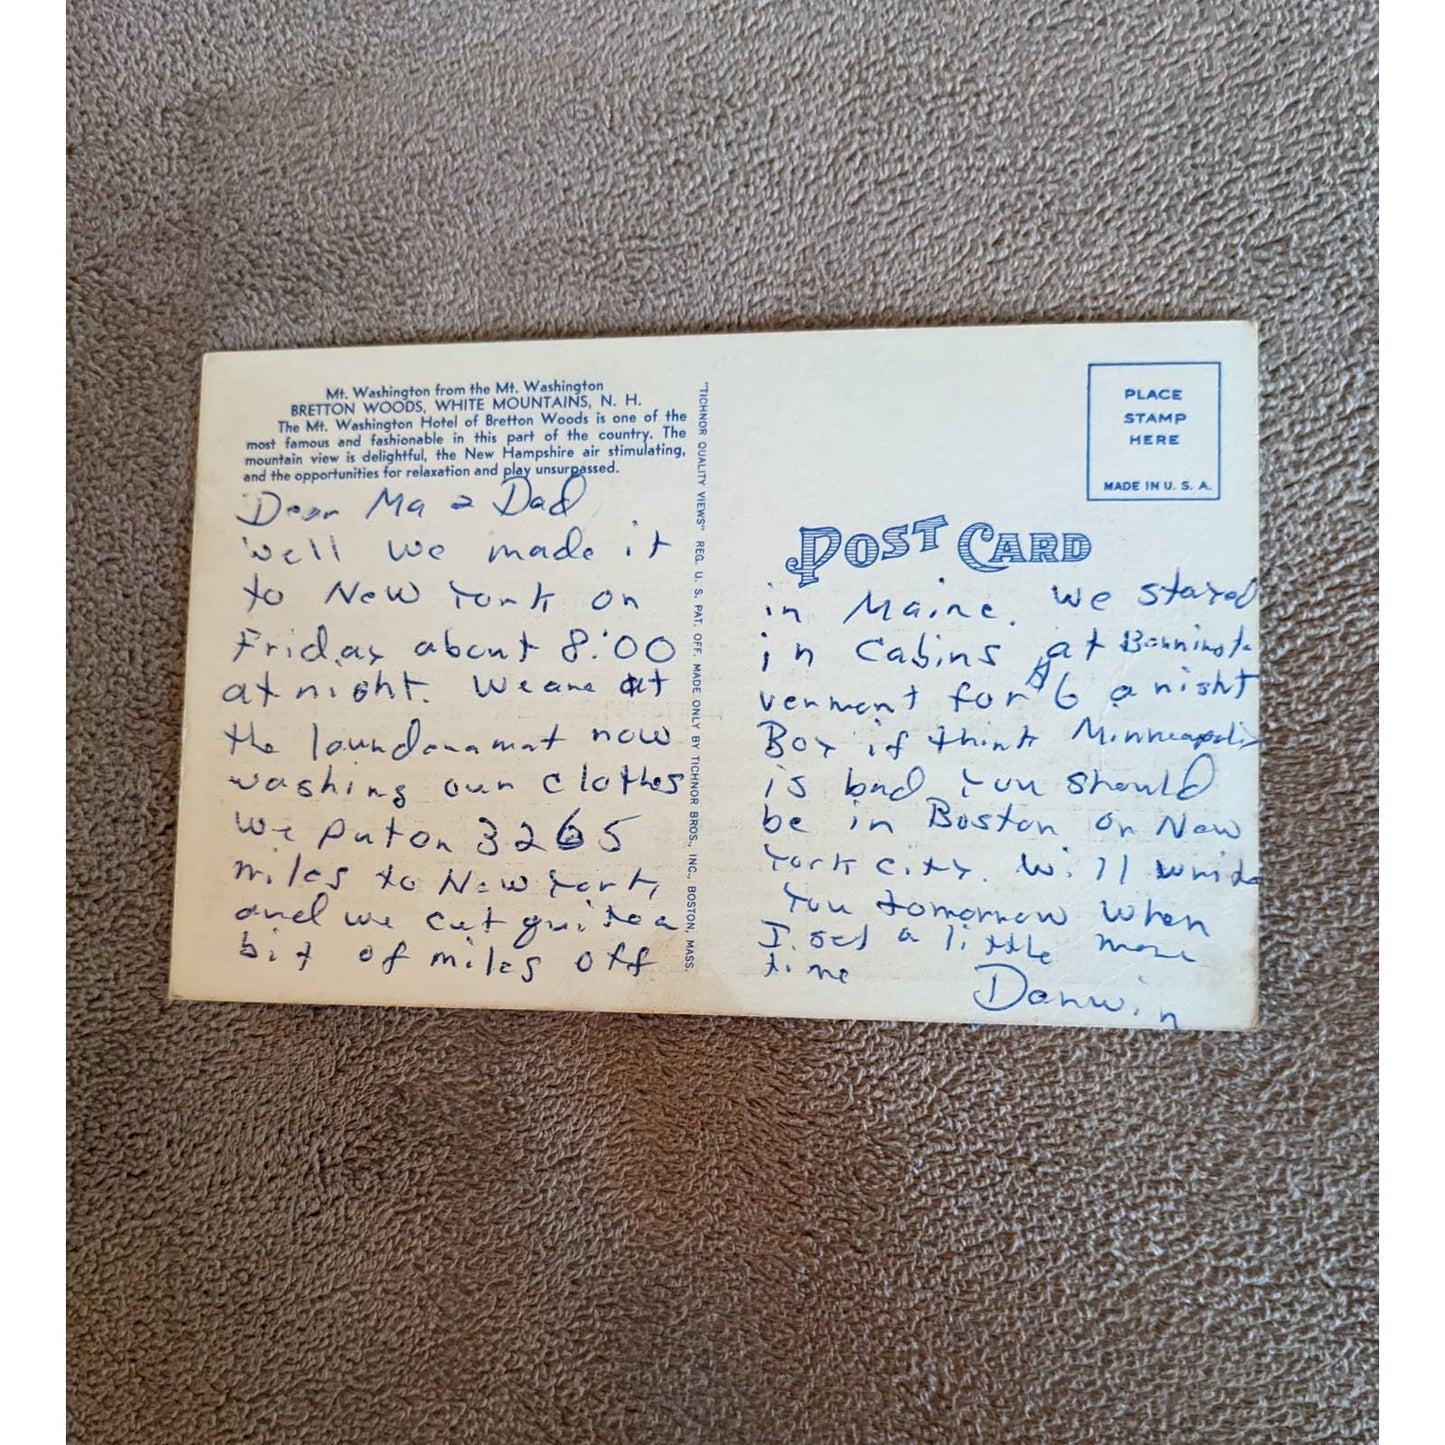 Mt. Washington from the Mt. Washington
BRETTON WOODS, WHITE MOUNTAINS, N. H.
The Mt. Washington Hotel of Bretton Woods is one of the
most famous and fashionable in this part of the country. The
mountain view is delightful, the New Hampshire air stimulating,
and the opportunities for relaxation and play unsurpassed.
Dear Ma & Dad
well we made it
to New York on
Friday about 8:00
at night. We are at
the laundaramat now
washing our clothes
We put on 3265
miles to New York,
and we cut quite a
bit of miles off
"TICHNOR QUALITY VIEWS" REG. U. S. PAT. OFF. MADE ONLY BY TICHNOR BROS., INC., BOSTON, MASS.
PLACE
STAMP
HERE
MADE IN U. S. A.
POST CARD
in Maine. We stayed
in Cabins at
vermont for $6 a night
Boy if think Minneapolis
is bad you should
be in Boston or New
York city. Will write
You tomorrow when
I get a little more
time
Darwin